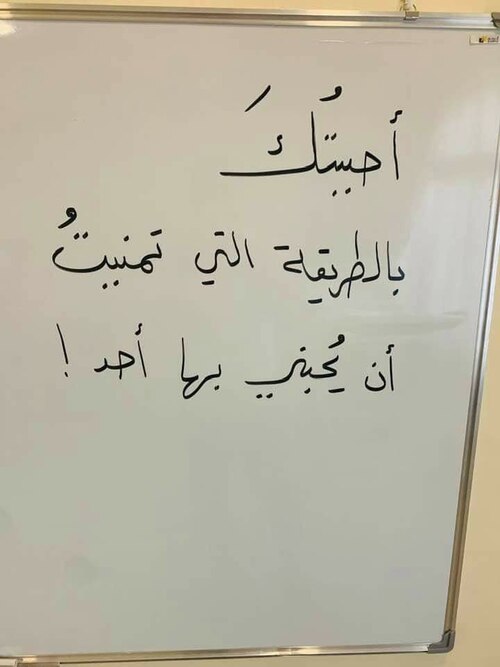 أحببتُكَ
بالطريقة التي تمنيتُ
أن يُحبني بها أحد !